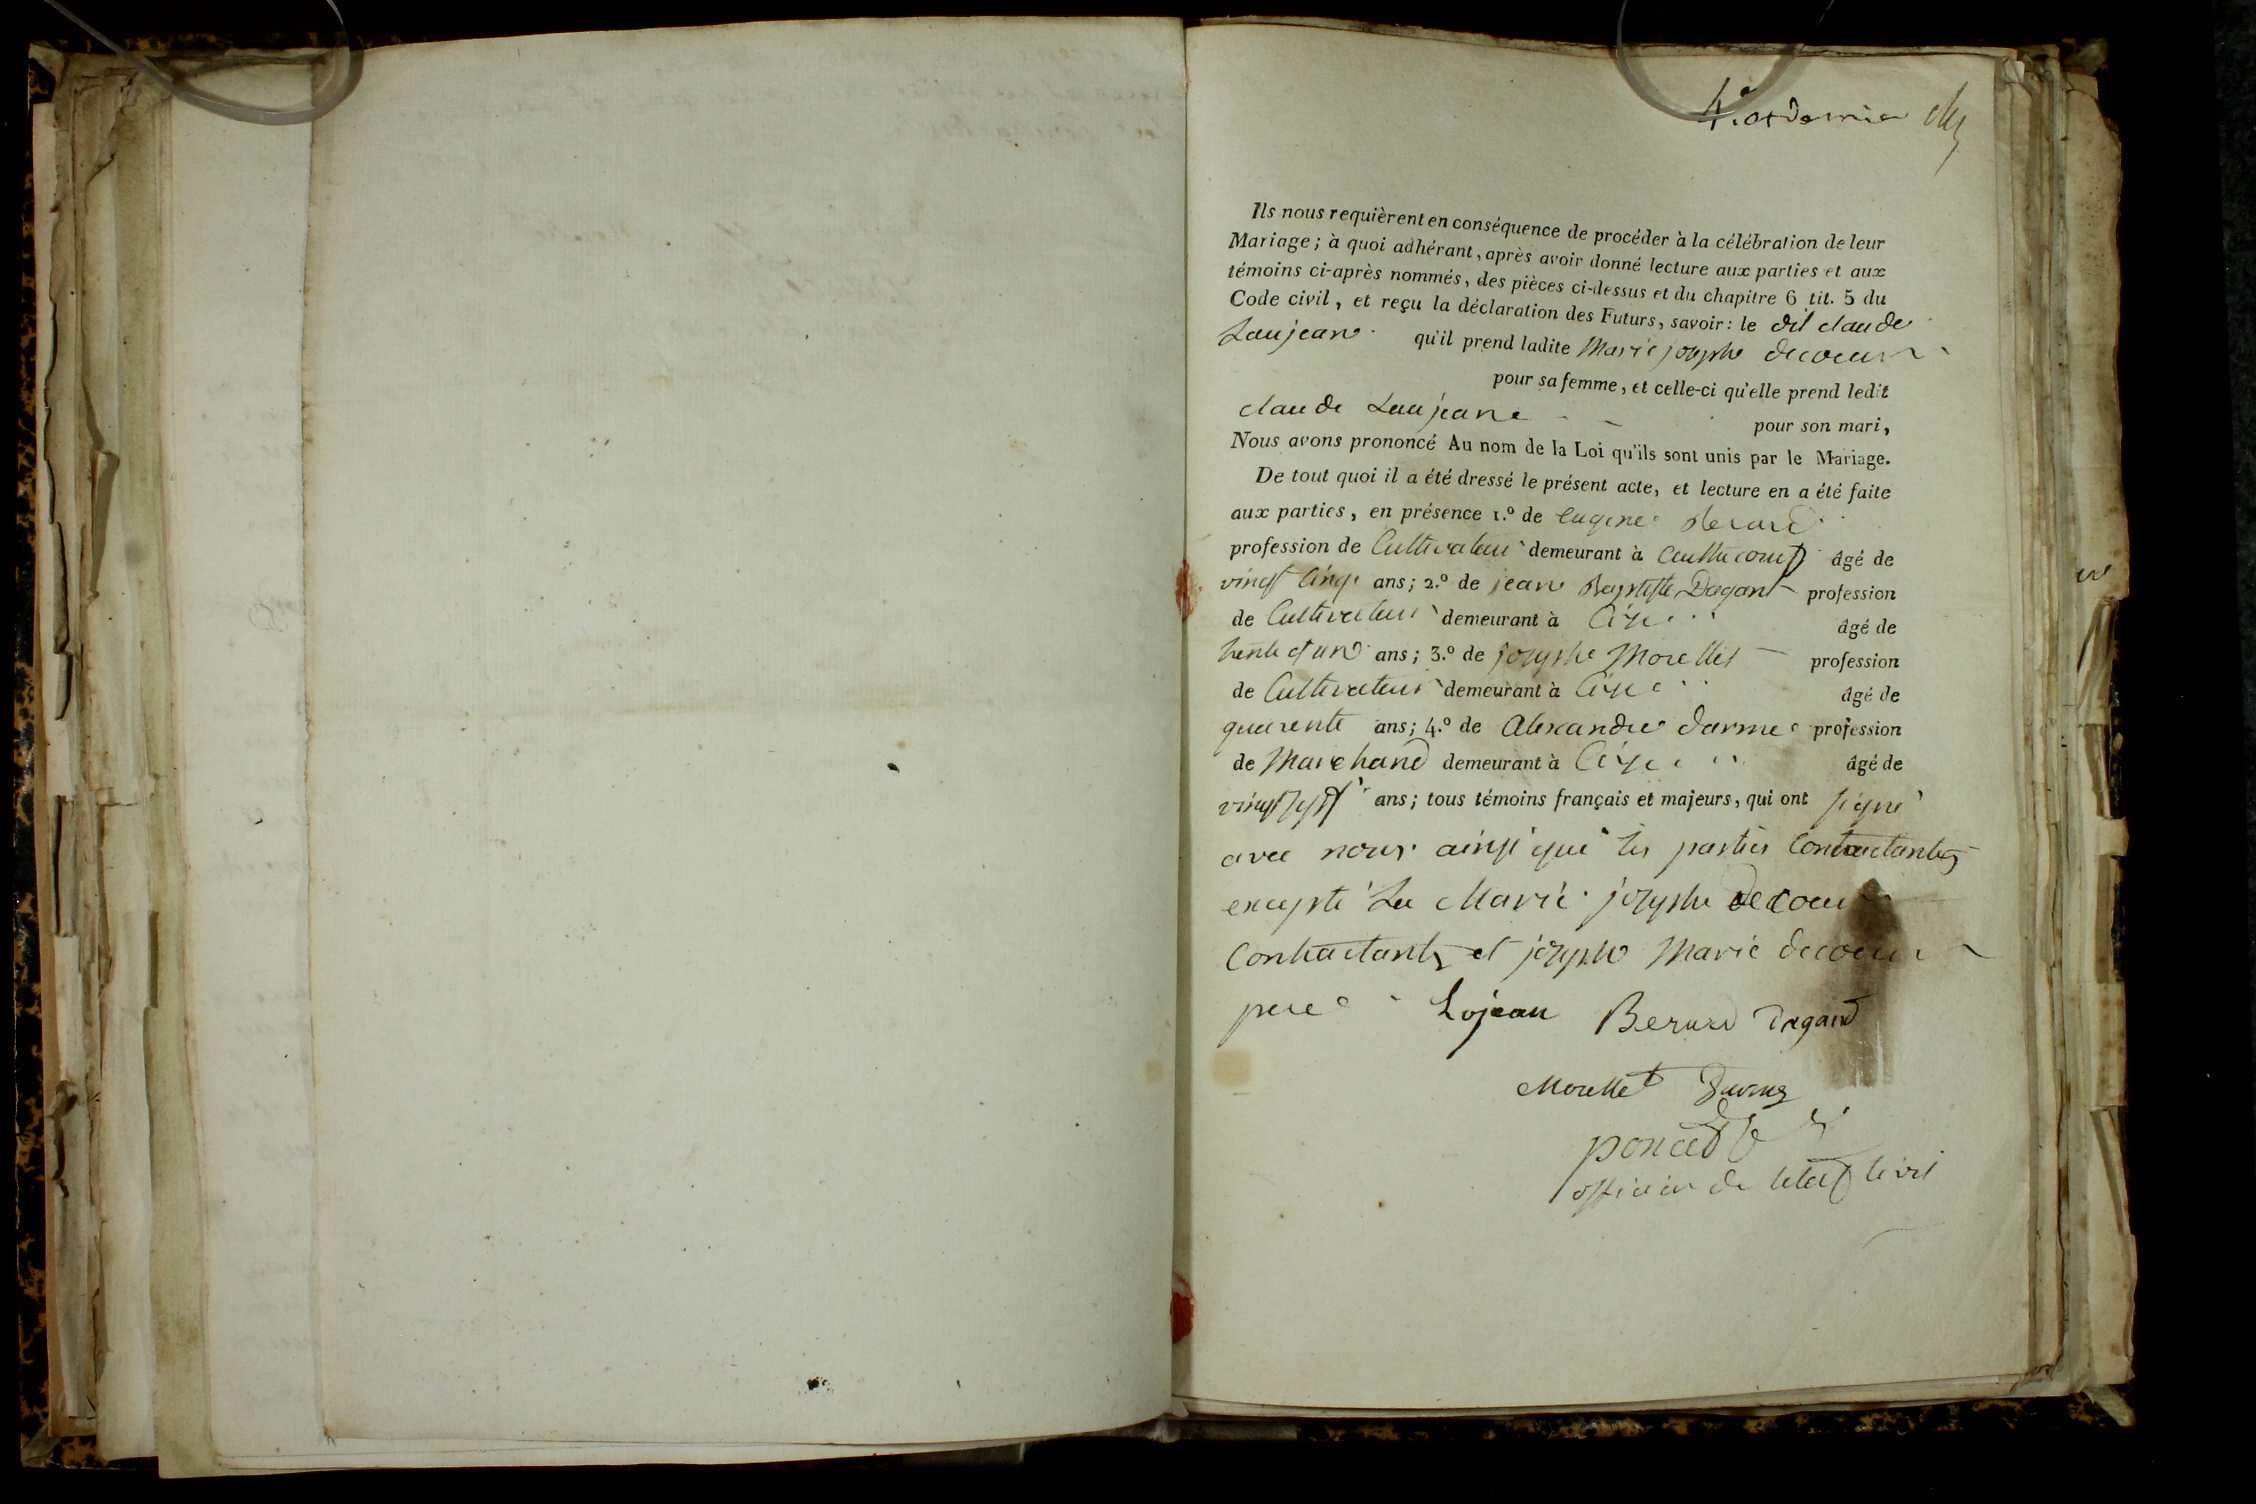 4.e et dernier
Ils nous requièrent en conséquence de procéder à la célébration de leur
Mariage; à quoi adhérant, après avoir donné lecture aux parties et aux
témoins ci-après nommés, des pièces ci-dessus et du chapitre 6 tit. 5 du
Code civil, et reçu la déclaration des Futurs, savoir: le dit claude
Laujean qu'il prend ladite Marie josephe decoeur
pour sa femme, et celle-ci qu'elle prend ledit
claude Laujean
pour son mari,
Nous avons prononcé Au nom de la Loi qu'ils sont unis par le Mariage.
De tout quoi il a été dressé le présent acte, et lecture en a été faite
aux parties, en présence 1.º de Eugene Berard
profession de Cultivateur demeurant à âgé de
vingt cinq ans; 2.º de jean Baptiste Dagand profession
de Cultivateur demeurant à âgé de
trente et un ans; 3.º de josephe Morellet profession
de Cultivateur demeurant à âgé de
quarente ans; 4.º de Alexandre darme profession
de Marchand demeurant à âgé de
vingt sept ans; tous témoins français et majeurs, qui ont signé
avec nous ainsi que les parties Contractantes
excepté La Marie josephe decoeur
Contractante et josephe Marie decoeur
pere Lojean Berard Dagand
Morellet Darme
poncet
officier de letat Civil